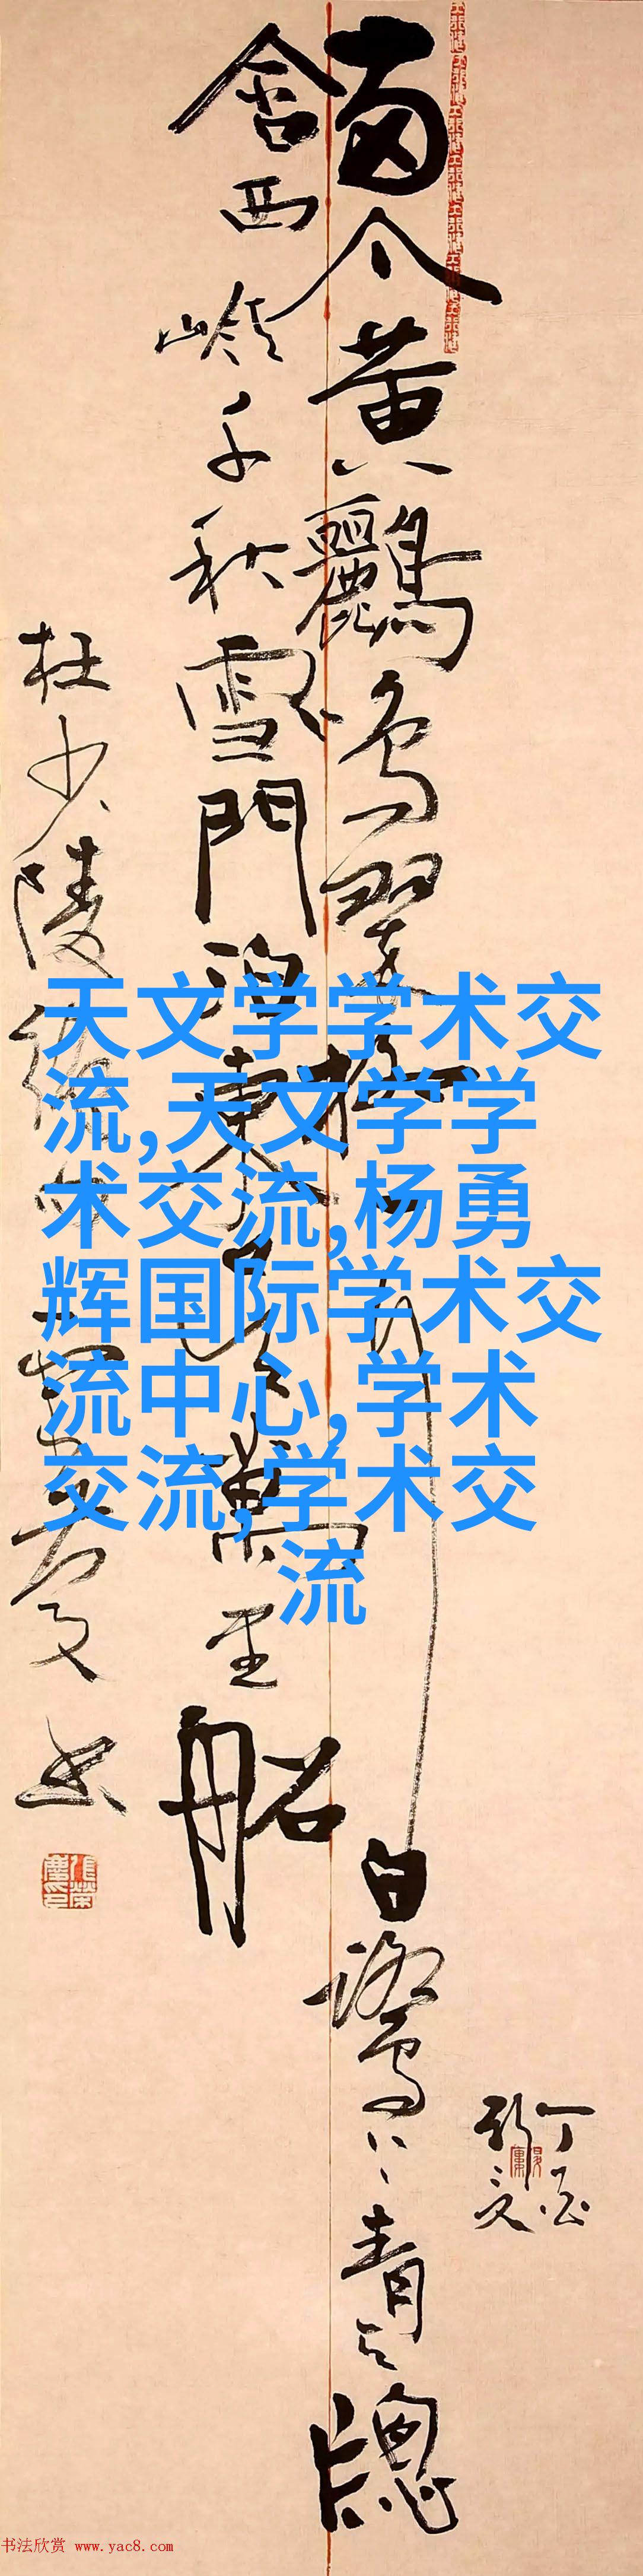 兩个黃鸝鳴翠柳一行白鷺上青天窗
含西嶺千秋雪門泊東吳萬里船
杜少陵絕句
书
天文学学术交
流,天文学学
术交流,杨勇
辉国际学术交
流中心,学术
交流,学术交
流
书法欣赏 www.yac8.com